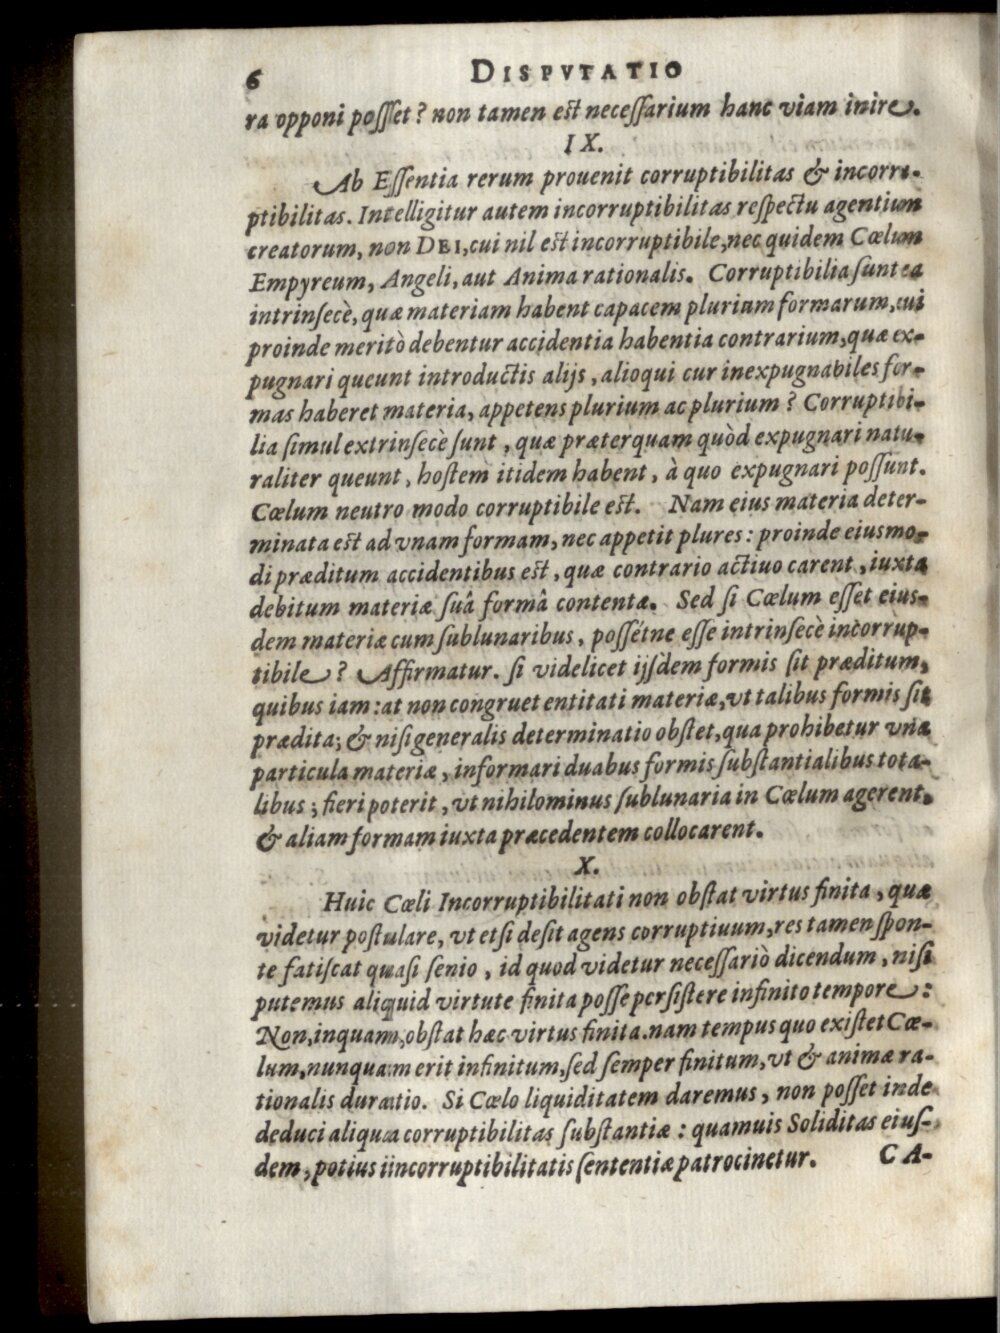 6 DISPVTATIO
ra opponi posset? non tamen est necessarium hanc viam inire.
IX.
Ab Essentia rerum prouenit corruptibilitas & incorru-
ptibilitas. Intelligitur autem incorruptibilitas respectu agentium
creatorum, non DEI, cui nil est incorruptibile, nec quidem Cœlum
Empyreum, Angeli, aut Anima rationalis. Corruptibilia sunt ea
intrinsecè, quæ materiam habent capacem plurium formarum, cui
proinde meritò debentur accidentia habentia contrarium, quæ ex-
pugnari queunt introductis alijs, alioqui cur inexpugnabiles for-
mas haberet materia, appetens plurium ac plurium? Corruptibi-
lia simul extrinsecè sunt, quæ præterquam quòd expugnari natu-
raliter queunt, hostem itidem habent, à quo expugnari possunt.
Cœlum neutro modo corruptibile est. Nam eius materia deter-
minata est ad vnam formam, nec appetit plures: proinde eiusmo-
di præditum accidentibus est, quæ contrario actiuo carent, iuxta
debitum materiæ suâ formâ contentæ. Sed si Cœlum esset eius-
dem materiæ cum sublunaribus, possétne esse intrinsecè incorrup-
tibile? Affirmatur. si videlicet ijsdem formis sit præditum,
quibus iam: at non congruet entitati materiæ, vt talibus formis sit
prædita; & nisi generalis determinatio obstet, qua prohibetur vna
particula materiæ, informari duabus formis substantialibus tota-
libus; fieri poterit, vt nihilominus sublunaria in Cœlum agerent,
& aliam formam iuxta præcedentem collocarent.
X.
Huic Cœli Incorruptibilitati non obstat virtus finita, quæ
videtur postulare, vt etsi desit agens corruptiuum, res tamen spon-
te fatiscat quasi senio, id quod videtur necessariò dicendum, nisi
putemus aliquid virtute finita posse persistere infinito tempore:
Non, inquam, obstat hæc virtus finita. nam tempus quo existet Cœ-
lum, nunquam erit infinitum, sed semper finitum, vt & animæ ra-
tionalis duratio. Si Cœlo liquiditatem daremus, non posset inde
deduci aliqua corruptibilitas substantiæ: quamuis Soliditas eius-
dem, potius iincorruptibilitatis sententiæ patrocinetur. CA-